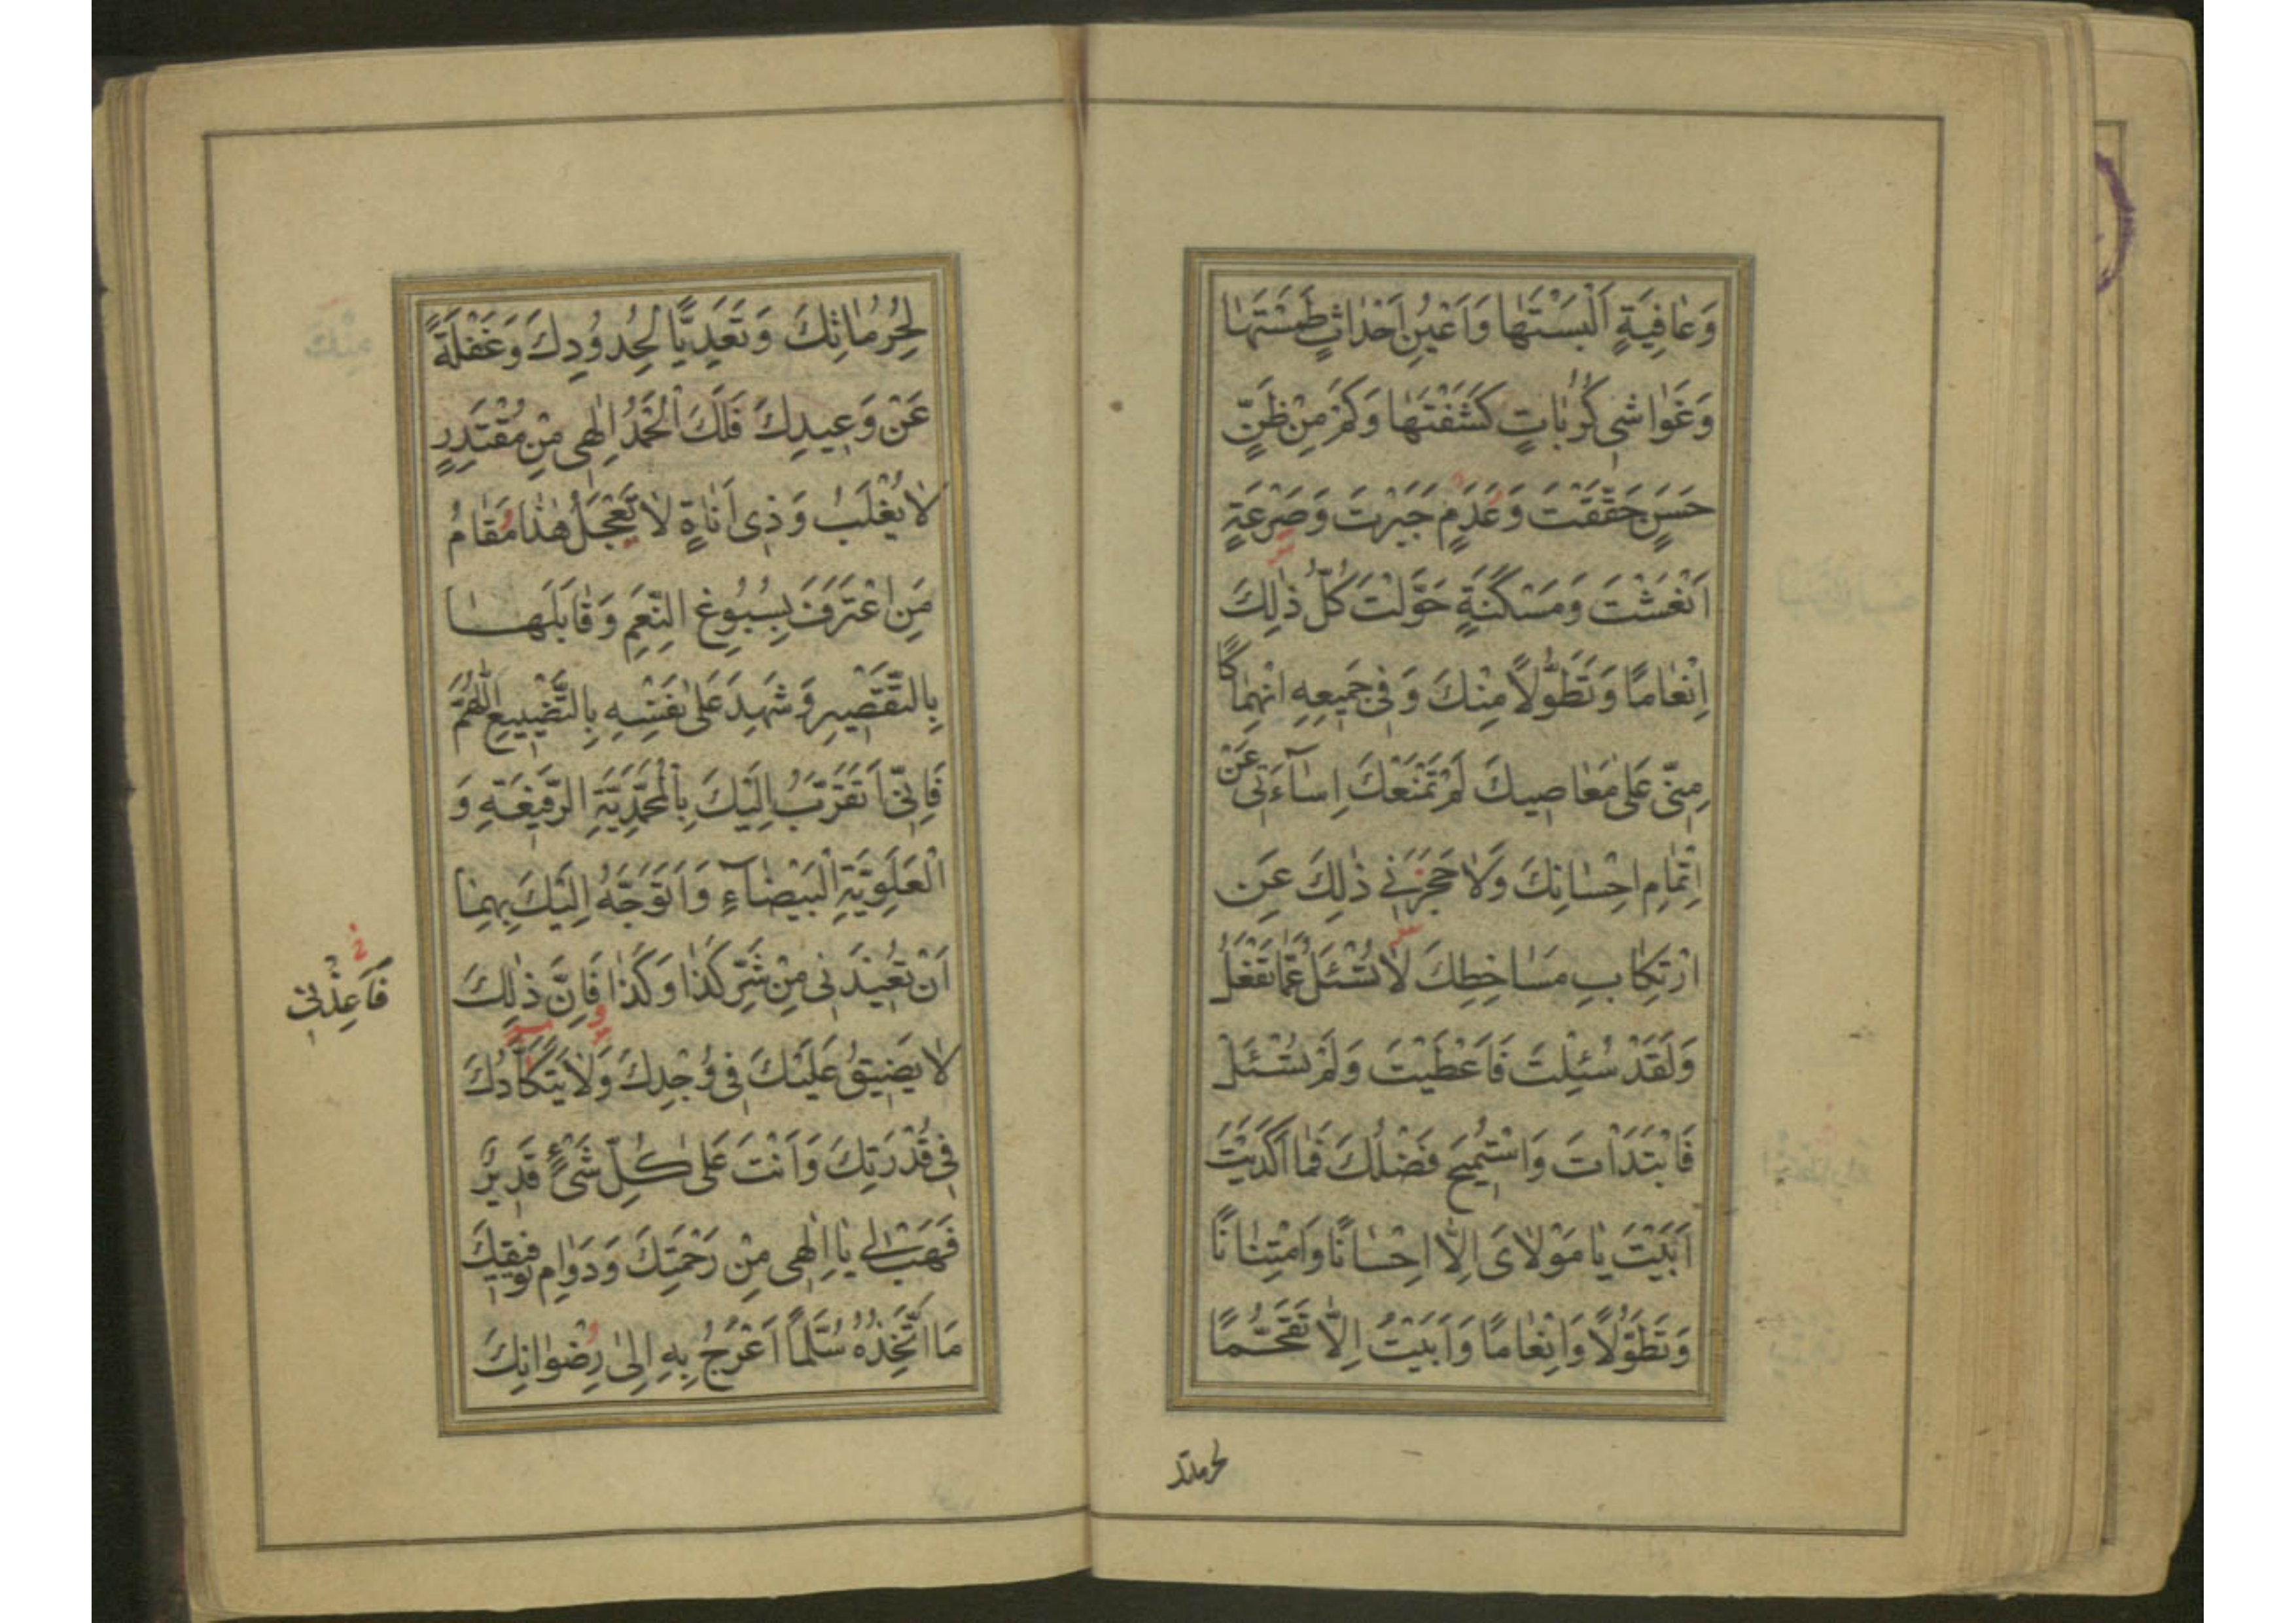 وَعٰافِيَةٍ اَلْبَسْتَهٰا وَاَعْيُنِ اَحْدٰاثٍ طَمَسْتَهٰا
وَغَوٰاشِي كُرُبٰاتٍ كَشَفْتَهٰا وَكَمْ مِنْ ظَنٍّ
حَسَنٍ حَقَّقْتَ وَعَدَمٍ جَبَرْتَ وَصَرْعَةٍ
اَنْعَشْتَ وَمَسْكَنَةٍ حَوَّلْتَ كُلُّ ذٰلِكَ
اِنْعٰامًا وَتَطَوُّلًا مِنْكَ وَفِي جَمِيعِهِ انْهِمٰاكًا
مِنّي عَلىٰ مَعٰاصِيكَ لَمْ تَمْنَعْكَ اِسٰآءَتِي عَنْ
اِتْمٰامِ اِحْسٰانِكَ وَلٰا حَجَزَنِي ذٰلِكَ عَنِ
ارْتِكٰابِ مَسٰاخِطِكَ لٰا تُسْئَلُ عَمّٰا تَفْعَلُ
وَلَقَدْ سُئِلْتَ فَاَعْطَيْتَ وَلَمْ تُسْئَلْ
فَابْتَدَاْتَ وَاسْتُمِيحَ فَضْلُكَ فَمٰا اَكْدَيْتَ
اَبَيْتَ يٰا مَوْلٰايَ اِلّٰا اِحْسٰانًا وَامْتِنٰانًا
وَتَطَوُّلًا وَاِنْعٰامًا وَاَبَيْتُ اِلّٰا تَقَحُّمًا
لحرماتك
لِحُرُمٰاتِكَ وَتَعَدِّيًا لِحُدُودِكَ وَغَفْلَةً
عَنْ وَعِيدِكَ فَلَكَ الْحَمْدُ اِلٰهِي مِنْ مُقْتَدِرٍ
لٰا يُغْلَبُ وَذِي اَنٰاةٍ لٰا تَعْجَلُ هٰذٰا مَقٰامُ
مَنِ اعْتَرَفَ بِسُبُوغِ النِّعَمِ وَقٰابَلَهٰا
بِالتَّقْصِيرِ وَشَهِدَ عَلىٰ نَفْسِهِ بِالتَّضْيِيعِ اَللّٰهُمَّ
فَاِنِّي اَتَقَرَّبُ اِلَيْكَ بِالْمُحَمَّدِيَّةِ الرَّفِيعَةِ وَ
الْعَلَوِيَّةِ الْبَيْضٰآءِ وَاَتَوَجَّهُ اِلَيْكَ بِهِمٰا
اَنْ تُعِيذَنِي مِنْ شَرِّ كَذٰا وَكَذٰا فَاِنَّ ذٰلِكَ
فَاَعِذْنِي
لٰا يَضِيقُ عَلَيْكَ فِي وُجْدِكَ وَلٰا يَتَكَاَّدُكَ
فِي قُدْرَتِكَ وَاَنْتَ عَلىٰ كُلِّ شَيْءٍ قَدِيرٌ
فَهَبْ لِي يٰا اِلٰهِي مِنْ رَحْمَتِكَ وَدَوٰامِ تَوْفِيقِكَ
مٰا اَتَّخِذُهُ سُلَّمًا اَعْرُجُ بِهِ اِلىٰ رِضْوٰانِكَ